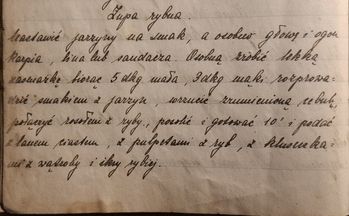 Zupa rybna.
Nastawić jarzyny na smak, a osobno głowę i ogon
karpia, lina lub sandacza. Osobno zrobić lekką
zasmażkę biorąc 5 dkg masła, 3 dkg mąki, rozprowa-
dzić smakiem z jarzyn, wrzucić zrumienioną cebulę,
połączyć rosołem z ryby, posolić i gotować 10' i podać
z lanem ciastem, z pulpetami z ryb, z kluseczka-
mi z wątroby i ikry rybiej.